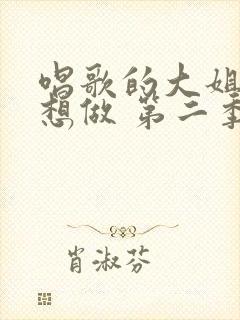 唱歌的大姐
想做 第三季
肖淑芬